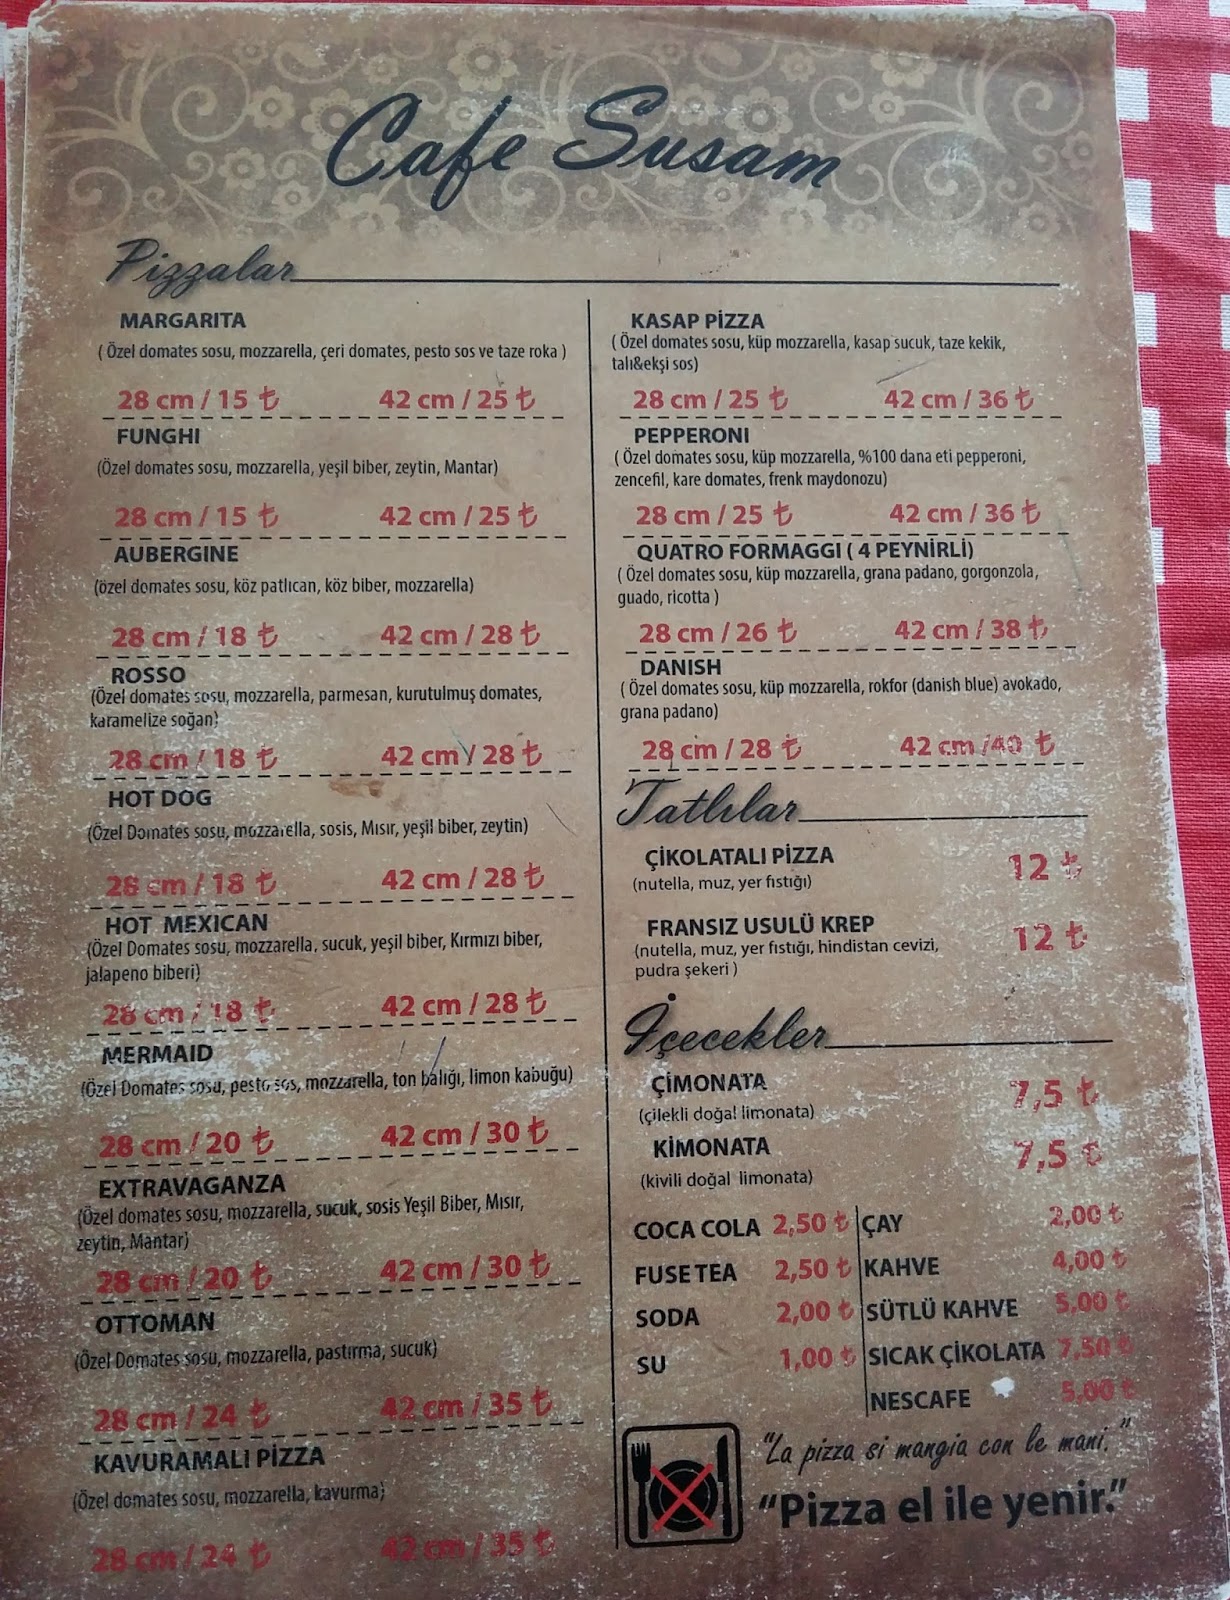 Cafe Susam
Pizzalar
MARGARITA
( Özel domates sosu, mozzarella, çeri domates, pesto sos ve taze roka )
28 cm / 15 ₺ 42 cm / 25 ₺
FUNGHI
(Özel domates sosu, mozzarella, yeşil biber, zeytin, Mantar)
28 cm / 15 ₺ 42 cm / 25 ₺
AUBERGINE
(özel domates sosu, köz patlıcan, köz biber, mozzarella)
28 cm / 18 ₺ 42 cm / 28 ₺
ROSSO
(Özel domates sosu, mozzarella, parmesan, kurutulmuş domates,
karamelize soğan)
28 cm / 18 ₺ 42 cm / 28 ₺
HOT DOG
(Özel Domates sosu, mozzarella, sosis, Mısır, yeşil biber, zeytin)
28 cm / 18 ₺ 42 cm / 28 ₺
HOT MEXICAN
(Özel Domates sosu, mozzarella, sucuk, yeşil biber, Kırmızı biber,
jalapeno biberi)
28 cm / 18 ₺ 42 cm / 28 ₺
MERMAID
(Özel Domates sosu, pesto sos, mozzarella, ton balığı, limon kabuğu)
28 cm / 20 ₺ 42 cm / 30 ₺
EXTRAVAGANZA
(Özel domates sosu, mozzarella, sucuk, sosis Yeşil Biber, Mısır,
zeytin, Mantar)
28 cm / 20 ₺ 42 cm / 30 ₺
OTTOMAN
(Özel Domates sosu, mozzarella, pastırma, sucuk)
28 cm / 24 ₺ 42 cm / 35 ₺
KAVURAMALI PİZZA
(Özel domates sosu, mozzarella, kavurma)
28 cm / 24 ₺ 42 cm / 35 ₺
KASAP PİZZA
( Özel domates sosu, küp mozzarella, kasap sucuk, taze kekik,
talı&ekşi sos)
28 cm / 25 ₺ 42 cm / 36 ₺
PEPPERONI
( Özel domates sosu, küp mozzarella, %100 dana eti pepperoni,
zencefil, kare domates, frenk maydonozu)
28 cm / 25 ₺ 42 cm / 36 ₺
QUATRO FORMAGGI ( 4 PEYNİRLİ)
( Özel domates sosu, küp mozzarella, grana padano, gorgonzola,
guado, ricotta )
28 cm / 26 ₺ 42 cm / 38 ₺
DANISH
( Özel domates sosu, küp mozzarella, rokfor (danish blue) avokado,
grana padano)
28 cm / 28 ₺ 42 cm /40 ₺
Tatlılar
ÇİKOLATALI PİZZA 12 ₺
(nutella, muz, yer fıstığı)
FRANSIZ USULÜ KREP 12 ₺
(nutella, muz, yer fıstığı, hindistan cevizi,
pudra şekeri )
İçecekler
ÇİMONATA 7,5 ₺
(çilekli doğal limonata)
KİMONATA 7,5 ₺
(kivili doğal limonata)
COCA COLA 2,50 ₺ ÇAY 2,00 ₺
FUSE TEA 2,50 ₺ KAHVE 4,00 ₺
SODA 2,00 ₺ SÜTLÜ KAHVE 5,00 ₺
SU 1,00 ₺ SICAK ÇİKOLATA 7,50 ₺
NESCAFE 5,00 ₺
"La pizza si mangia con le mani."
"Pizza el ile yenir."